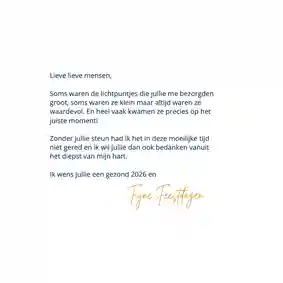 Lieve lieve mensen,
Soms waren de lichtpuntjes die jullie me bezorgden
groot, soms waren ze klein maar altijd waren ze
waardevol. En heel vaak kwamen ze precies op het
juiste moment!
Zonder jullie steun had ik het in deze moeilijke tijd
niet gered en ik wil jullie dan ook bedanken vanuit
het diepst van mijn hart.
Ik wens jullie een gezond 2026 en
Fijne Feestdagen